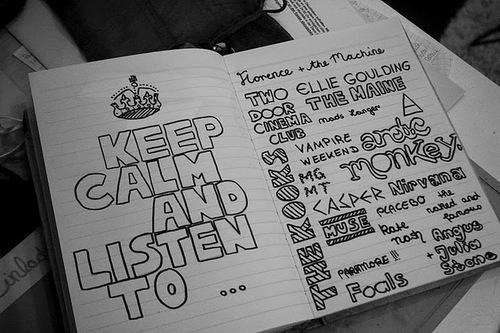 KEEP
CALM
AND
LISTEN
TO ...
Florence + the Machine
TWO
DOOR
CINEMA
CLUB
ELLIE GOULDING
THE MAINE
mads Langer
VAMPIRE
WEEKEND
arctic
monkeys
THE KOOKS
MG
MT
CASPER
Nirvana
MUSE
PLACEBO
the
naked and
famous
Kate
nash
Angus
+ Julia
Stone
PARAMORE!!!
Foals